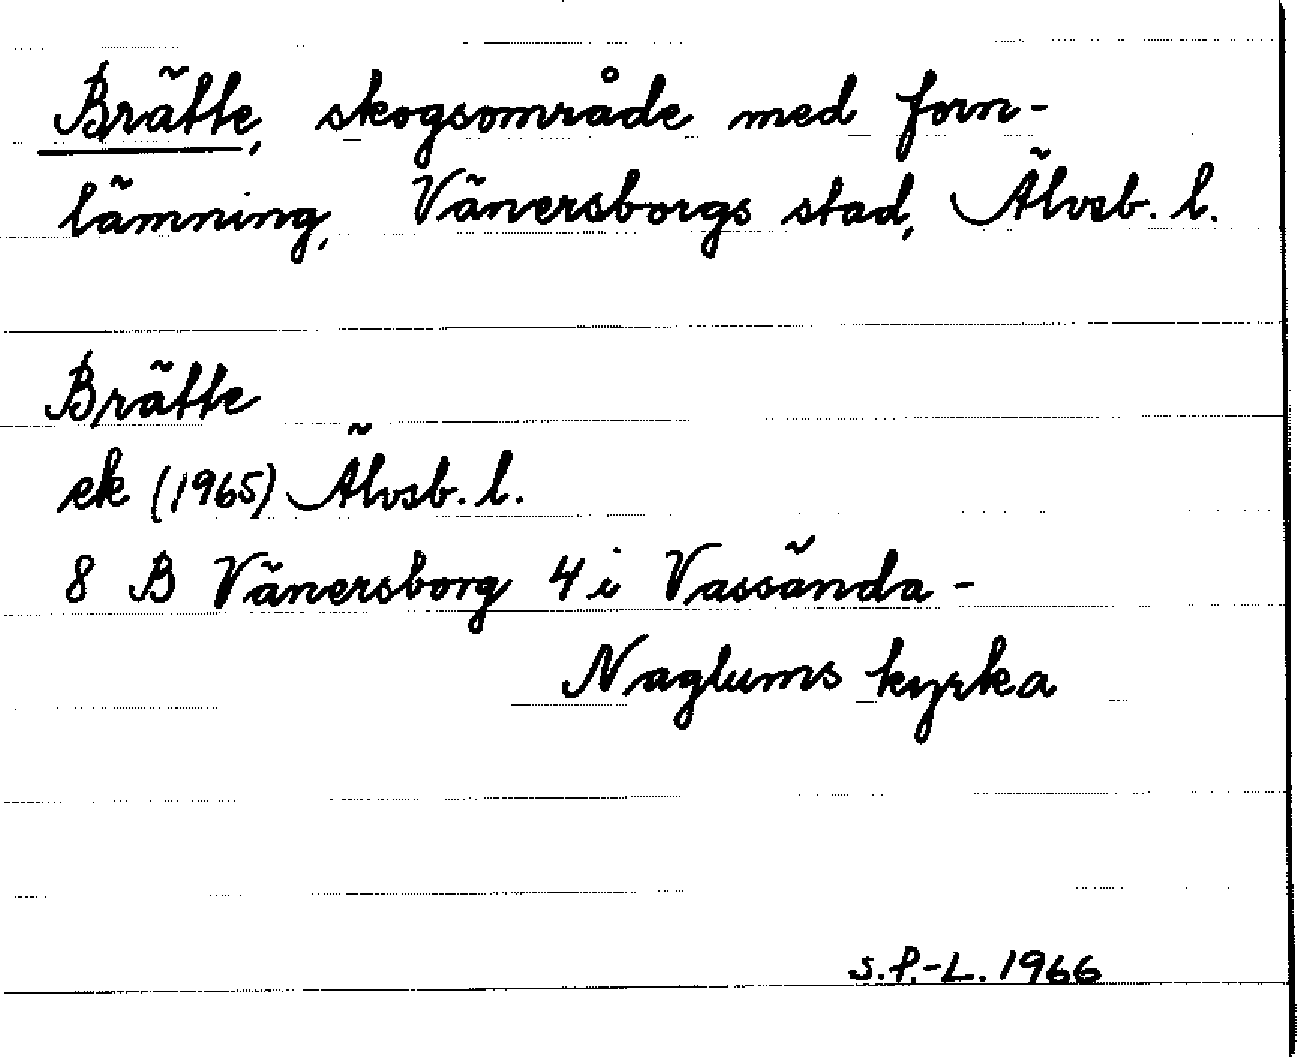 Brätte, skogsområde med forn-
lämning, Vänersborgs stad, Älvsb. l.
Brätte
ek (1965) Älvsb. l.
8 B Vänersborg 4 i Vassända-
Naglums kyrka
S.P.-L. 1966